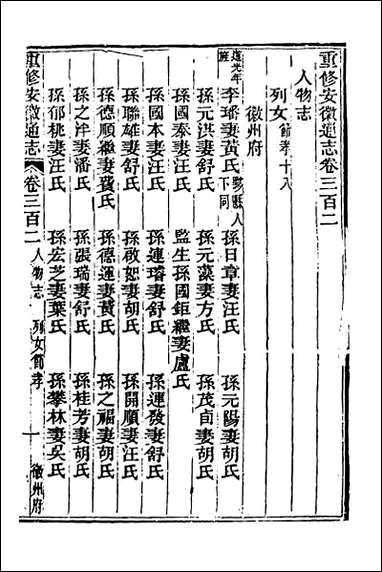 重修安徽通志卷三百二
人物志
列女節孝十八
徽州府
道光年旌
李璠妻黃氏黟縣人下同 孫日章妻汪氏 孫元陽妻胡氏
孫元洪妻舒氏 孫元藻妻方氏 孫茂貞妻胡氏
孫國泰妻汪氏 監生孫國鉅繼妻盧氏
孫國本妻汪氏 孫連璿妻舒氏 孫運發妻舒氏
孫聯雄妻舒氏 孫啟恕妻胡氏 孫開順妻汪氏
孫德順繼妻費氏 孫德運妻黃氏 孫之福妻胡氏
孫之泮妻潘氏 孫張瑞妻舒氏 孫桂芳妻胡氏
孫郁桃妻汪氏 孫宏芝妻葉氏 孫攀林妻吳氏
重修安徽通志 卷三百二 人物志 列女節孝 一 徽州府